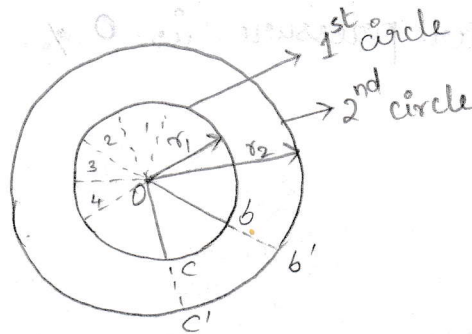 1st circle
2nd circle
1
2
3
4
r1
r2
O
b
b'
C
C'